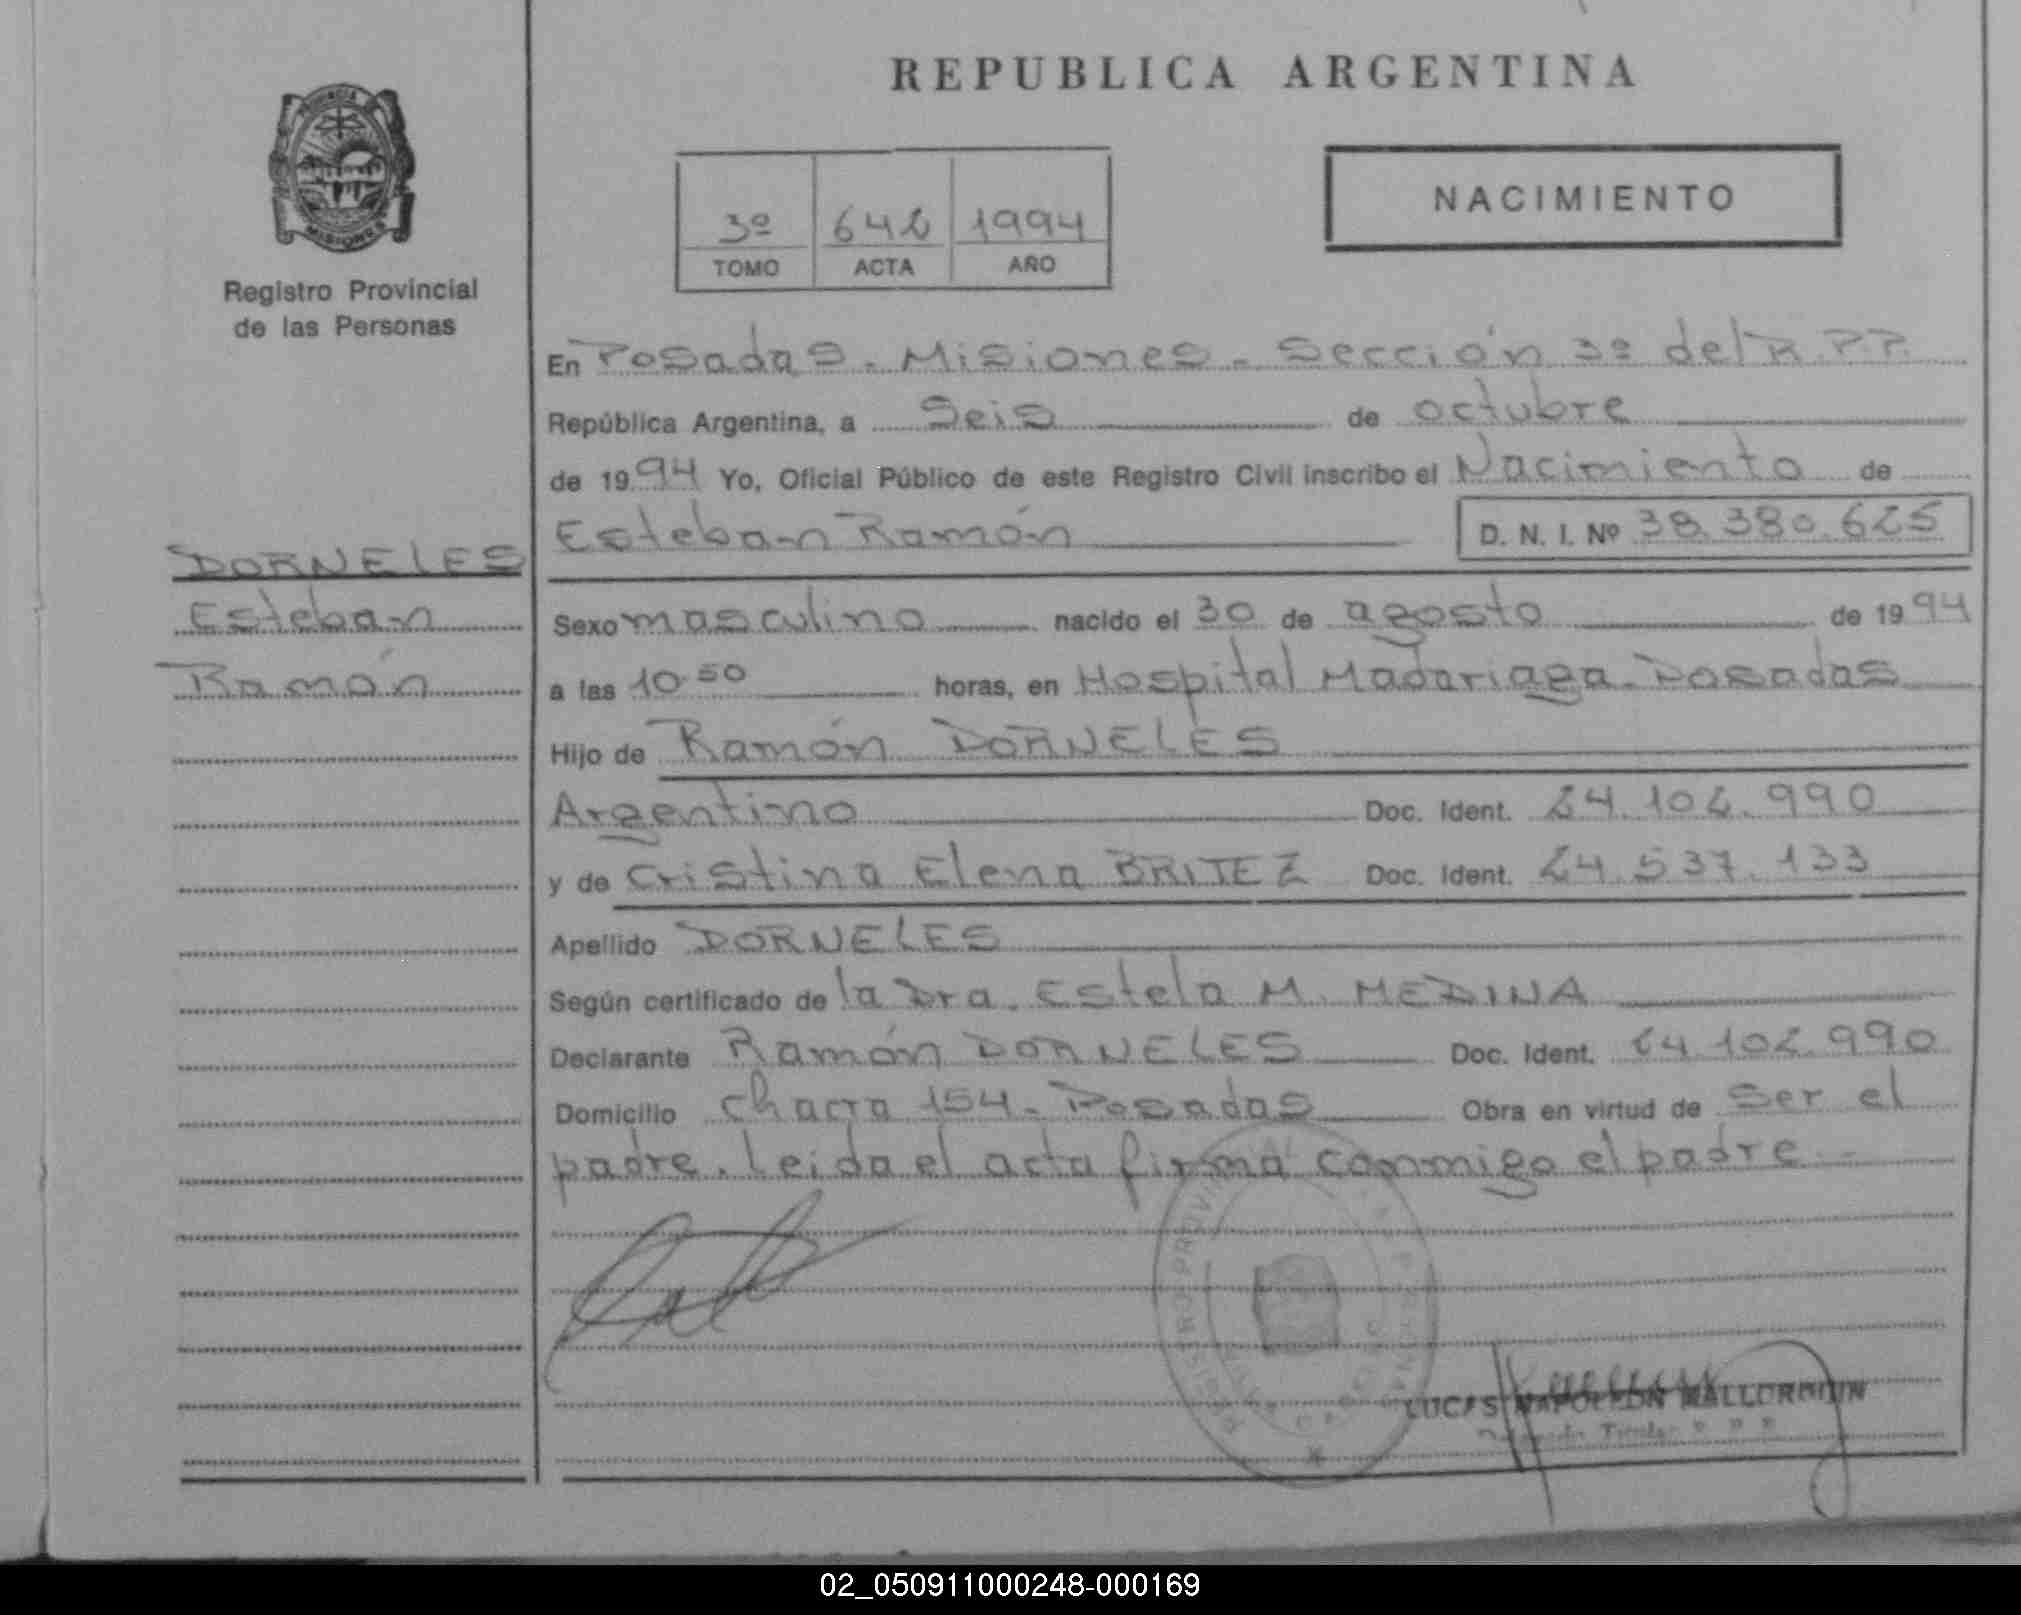 REPUBLICA ARGENTINA
PROVINCIA
MISIONES
Registro Provincial
de las Personas
3º 642 1994
TOMO ACTA AÑO
NACIMIENTO
En Posadas - Misiones - Sección 3º del R.P.P.
República Argentina, a Seis de octubre
de 1994 Yo, Oficial Público de este Registro Civil inscribo el Nacimiento de
Esteban Ramón D. N. I. Nº 38.380.625
DORNELES
Esteban
Ramón
Sexo masculino nacido el 30 de agosto de 1994
a las 10.50 horas, en Hospital Madariaga - Posadas
Hijo de Ramón DORNELES
Argentino Doc. Ident. 24.102.990
y de Cristina Elena BRITEZ Doc. Ident. 24.537.133
Apellido DORNELES
Según certificado de la Dra. Estela M. MEDINA
Declarante Ramón DORNELES Doc. Ident. 24.102.990
Domicilio Chacra 154 - Posadas Obra en virtud de Ser el
padre. Leida el acta firma conmigo el padre.-
REGISTRO PROVINCIAL
LUCAS NAPOLEON
02_050911000248-000169